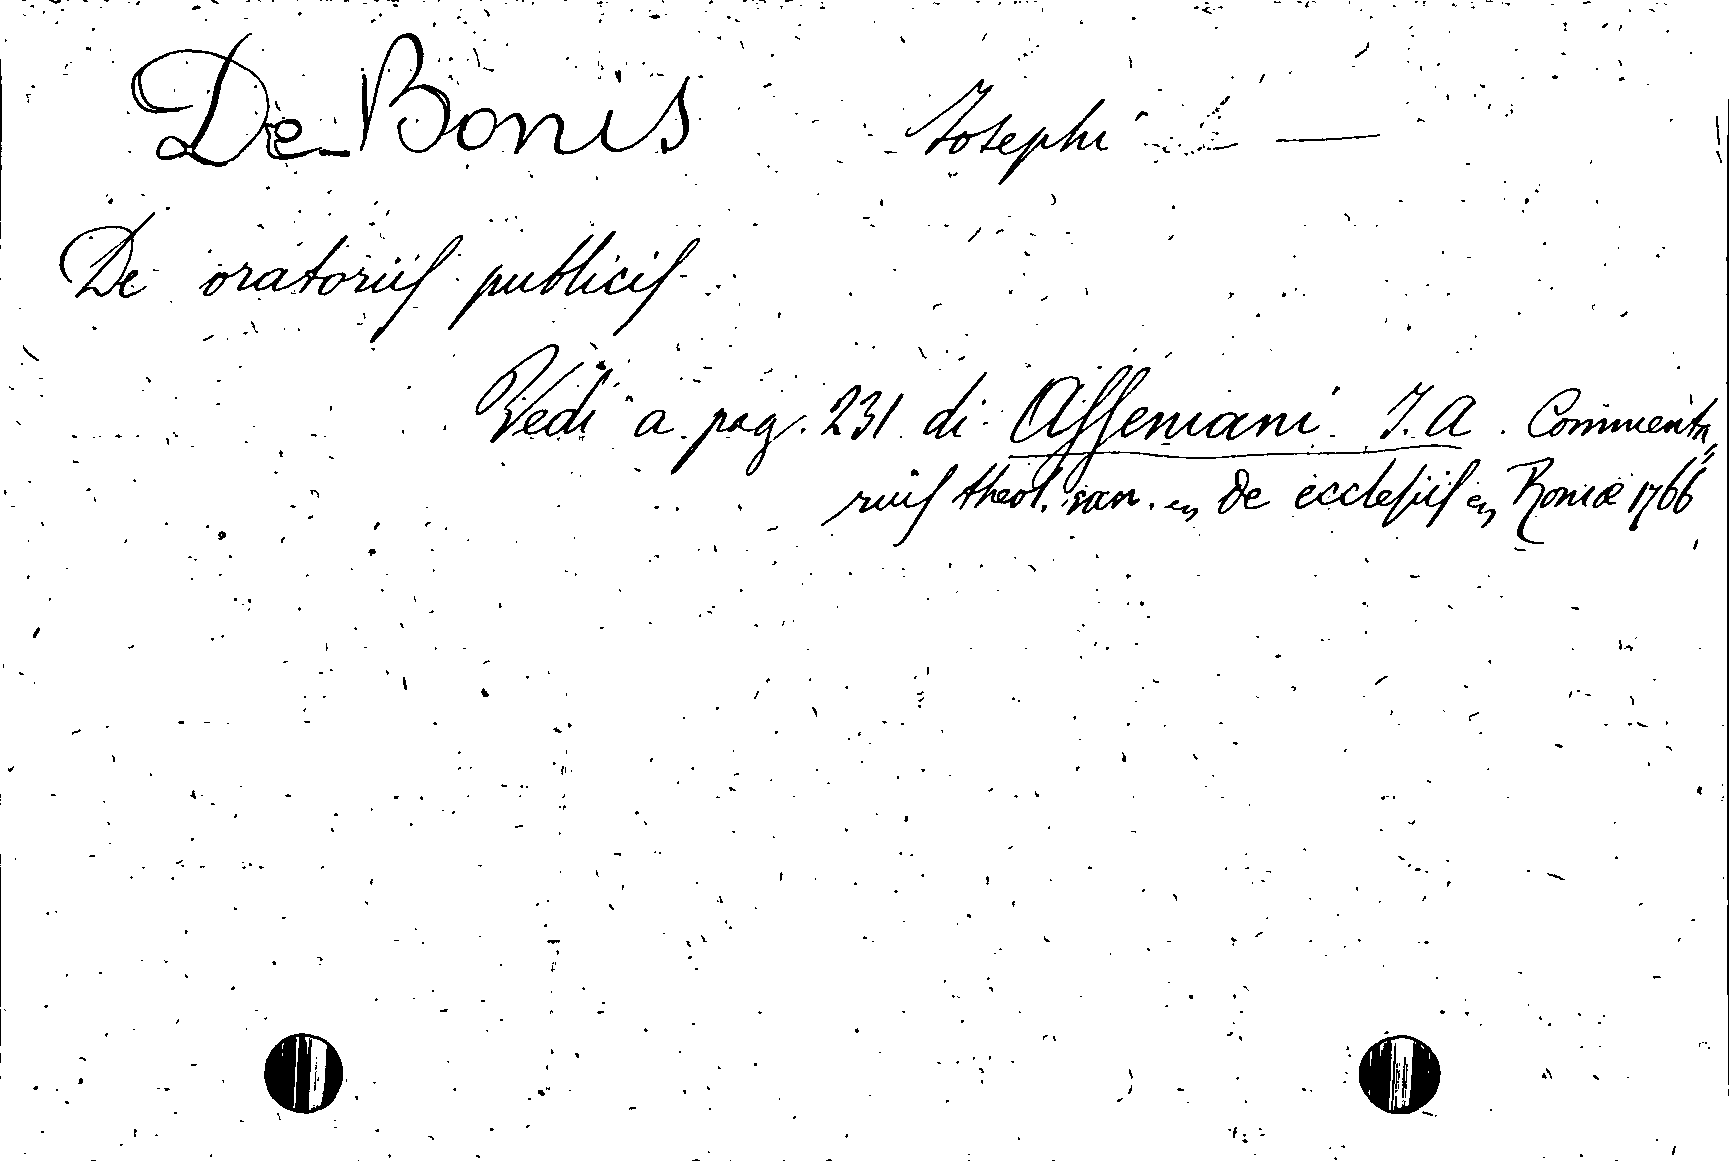 De-Bonis Josephi —
De oratoriis publicis
Vedi a pag. 231 di Assemani J. A. Commenta„
riis theol. can. „ de ecclesiis „ Romæ 1766